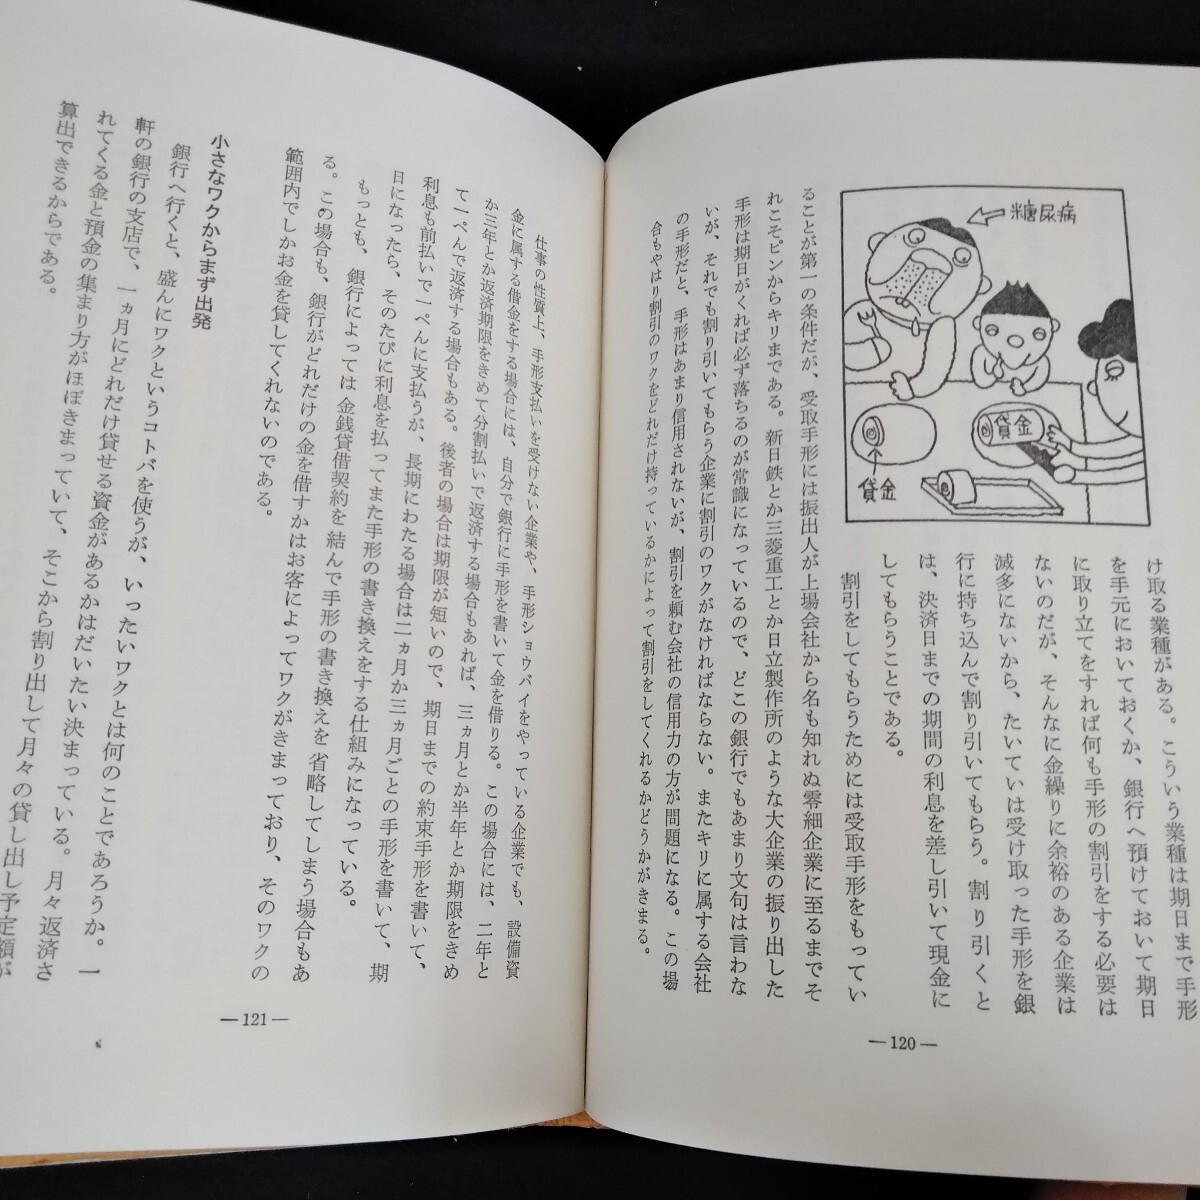 糖尿病
貸金
貸金
け取る業種がある。こういう業種は期日まで手形
を手元においておくか、銀行へ預けておいて期日
に取り立てをすれば何も手形の割引をする必要は
ないのだが、そんなに金繰りに余裕のある企業は
滅多にないから、たいていは受け取った手形を銀
行に持ち込んで割り引いてもらう。割り引くと
は、決済日までの期間の利息を差し引いて現金に
してもらうことである。
割引をしてもらうためには受取手形をもってい
ることが第一の条件だが、受取手形には振出人が上場会社から名も知れぬ零細企業に至るまでそ
れこそピンからキリまである。新日鉄とか三菱重工とか日立製作所のような大企業の振り出した
手形は期日がくれば必ず落ちるのが常識になっているので、どこの銀行でもあまり文句は言わな
いが、それでも割り引いてもらう企業に割引のワクがなければならない。またキリに属する会社
の手形だと、手形はあまり信用されないが、割引を頼む会社の信用力の方が問題になる。この場
合もやはり割引のワクをどれだけ持っているかによって割引をしてくれるかどうかがきまる。
—120—
仕事の性質上、手形支払いを受けない企業や、手形ショウバイをやっている企業でも、設備資
金に属する借金をする場合には、自分で銀行に手形を書いて金を借りる。この場合には、二年と
か三年とか返済期限をきめて分割払いで返済する場合もあれば、三ヵ月とか半年とか期限をきめ
て一ぺんで返済する場合もある。後者の場合は期限が短いので、期日までの約束手形を書いて、
利息も前払いで一ぺんに支払うが、長期にわたる場合は二ヵ月か三ヵ月ごとの手形を書いて、期
日になったら、そのたびに利息を払ってまた手形の書き換えをする仕組みになっている。
もっとも、銀行によっては金銭貸借契約を結んで手形の書き換えを省略してしまう場合もあ
る。この場合も、銀行がどれだけの金を借すかはお客によってワクがきまっており、そのワクの
範囲内でしかお金を貸してくれないのである。
小さなワクからまず出発
銀行へ行くと、盛んにワクというコトバを使うが、いったいワクとは何のことであろうか。一
軒の銀行の支店で、一ヵ月にどれだけ貸せる資金があるかはだいたい決まっている。月々返済さ
れてくる金と預金の集まり方がほぼきまっていて、そこから割り出して月々の貸し出し予定額が
算出できるからである。
—121—